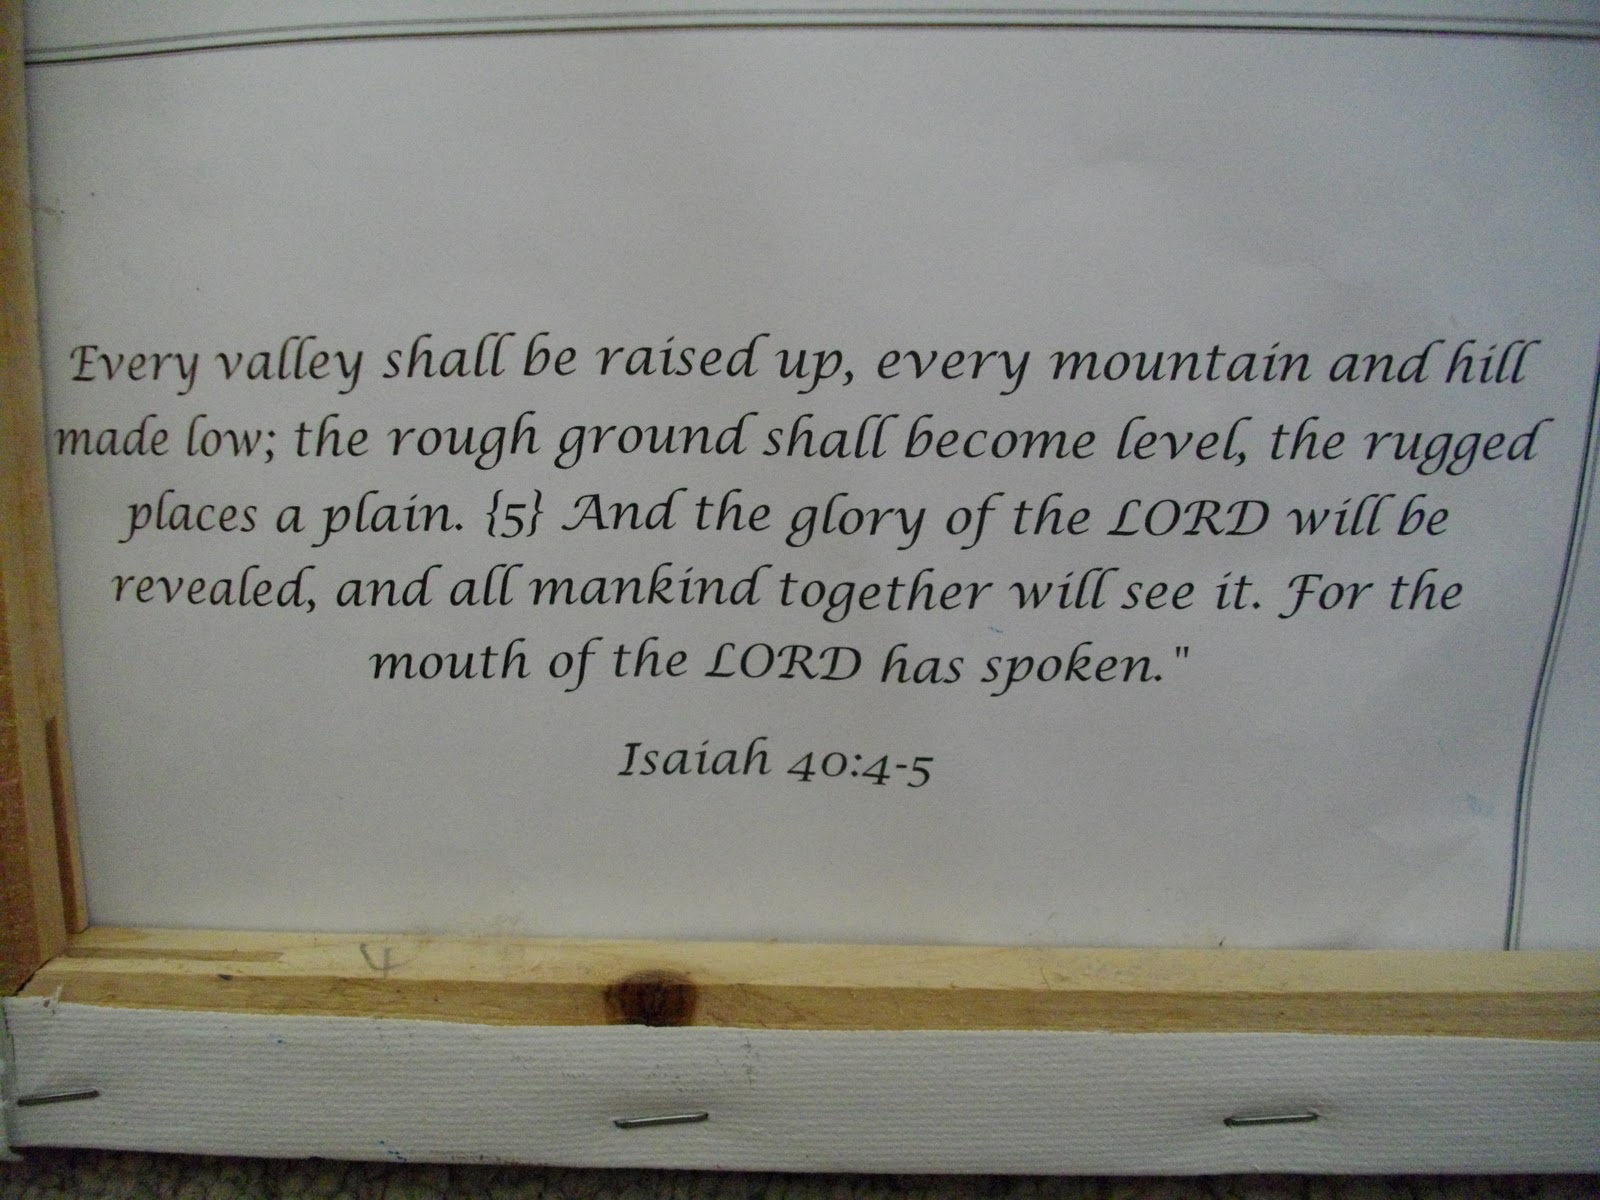 Every valley shall be raised up, every mountain and hill
made low; the rough ground shall become level, the rugged
places a plain. {5} And the glory of the LORD will be
revealed, and all mankind together will see it. For the
mouth of the LORD has spoken."
Isaiah 40:4-5